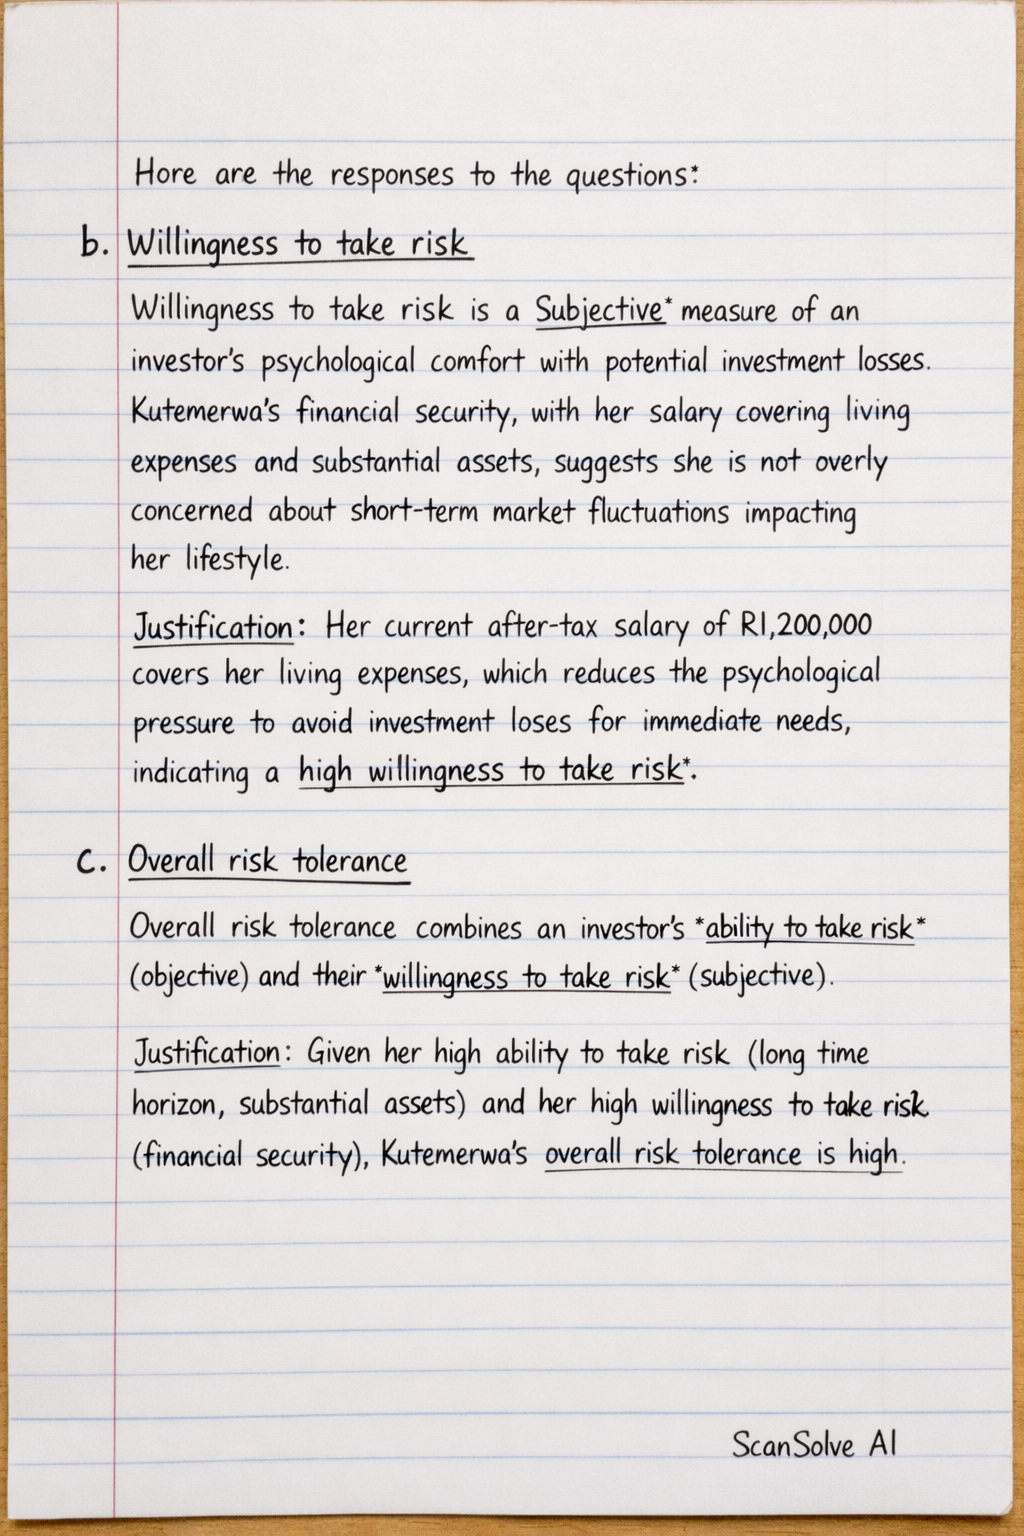 Hore are the responses to the questions:
b. Willingness to take risk
Willingness to take risk is a Subjective* measure of an
investor's psychological comfort with potential investment losses.
Kutemerwa's financial security, with her salary covering living
expenses and substantial assets, suggests she is not overly
concerned about short-term market fluctuations impacting
her lifestyle.
Justification: Her current after-tax salary of R1,200,000
covers her living expenses, which reduces the psychological
pressure to avoid investment loses for immediate needs,
indicating a high willingness to take risk*.
c. Overall risk tolerance
Overall risk tolerance combines an investor's *ability to take risk*
(objective) and their *willingness to take risk* (subjective).
Justification: Given her high ability to take risk (long time
horizon, substantial assets) and her high willingness to take risk
(financial security), Kutemerwa's overall risk tolerance is high.
ScanSolve AI